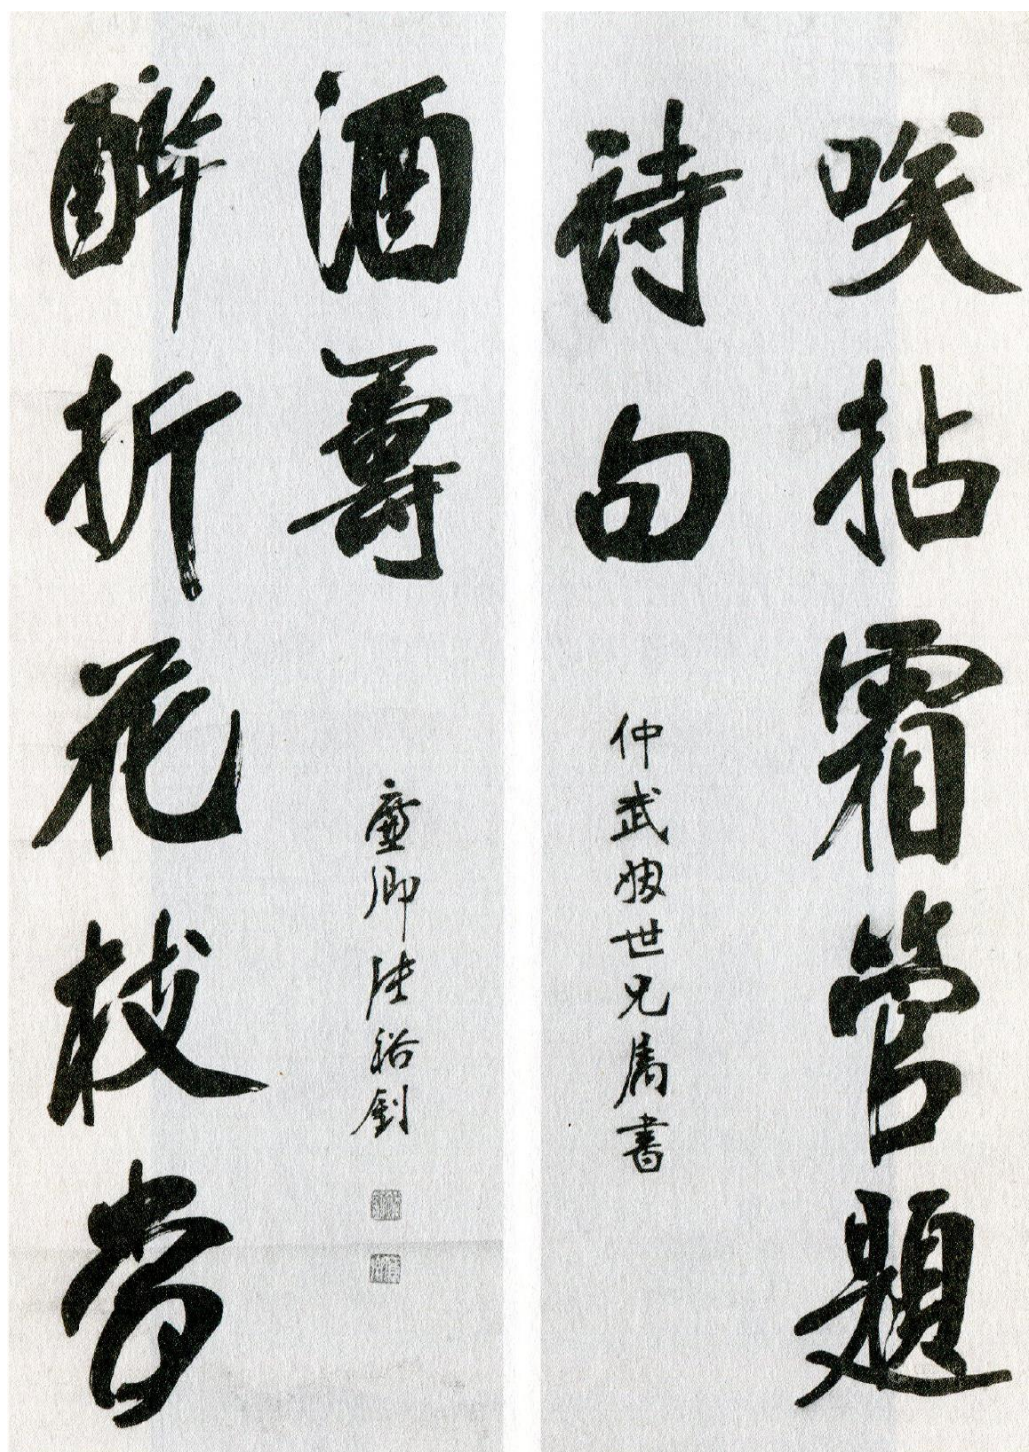 咲拈霜管題
詩句
仲武姻世兄属書
醉折花枝當
酒尊
廉卿張裕釗